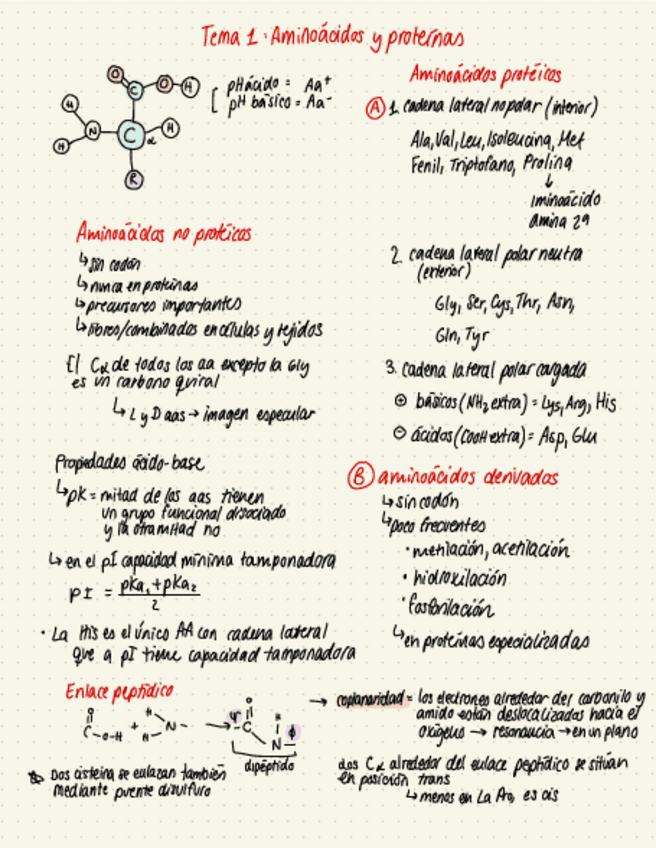 Tema 1: Aminoácidos y proteínas
O
C
O
H
H
N
H
C
α
H
R
pH ácido = Aa⁺
pH básico = Aa⁻
Aminoácidos no protéicos
↳ sin codón
↳ nunca en proteínas
↳ precursores importantes
↳ libres/combinados en células y tejidos
El Cα de todos los aa excepto la Gly
es un carbono quiral
↳ L y D aas → imagen especular
Propiedades ácido-base
↳ pK = mitad de los aas tienen
un grupo funcional disociado
y la otra mitad no
↳ en el pI capacidad mínima tamponadora
pI = pKa₁ + pKa₂
2
· La His es el único AA con cadena lateral
que a pI tiene capacidad tamponadora
Aminoácidos protéicos
A 1. cadena lateral no polar (interior)
Ala, Val, Leu, Isoleucina, Met
Fenil, Triptofano, Prolina
↓
iminoácido
amina 2ª
2. cadena lateral polar neutra
(exterior)
Gly, Ser, Cys, Thr, Asn,
Gln, Tyr
3. cadena lateral polar cargada
⊕ básicos (NH₂ extra) = Lys, Arg, His
⊖ ácidos (COOH extra) = Asp, Glu
B aminoácidos derivados
↳ sin codón
↳ poco frecuentes
· metilación, acetilación
· hidroxilación
· fosforilación
↳ en proteínas especializadas
Enlace peptídico
O
C
O-H
+
H
N
H
→
ψ
C
O
H
N
ϕ
dipéptido
Dos cisteína se enlazan también
mediante puente disulfuro
→ coplanaridad = los electrones alrededor del carbonilo y
amido están deslocalizados hacia el
oxígeno → resonancia → en un plano
dos Cα alrededor del enlace peptídico se sitúan
en posición trans
↳ menos en La Pro, es cis